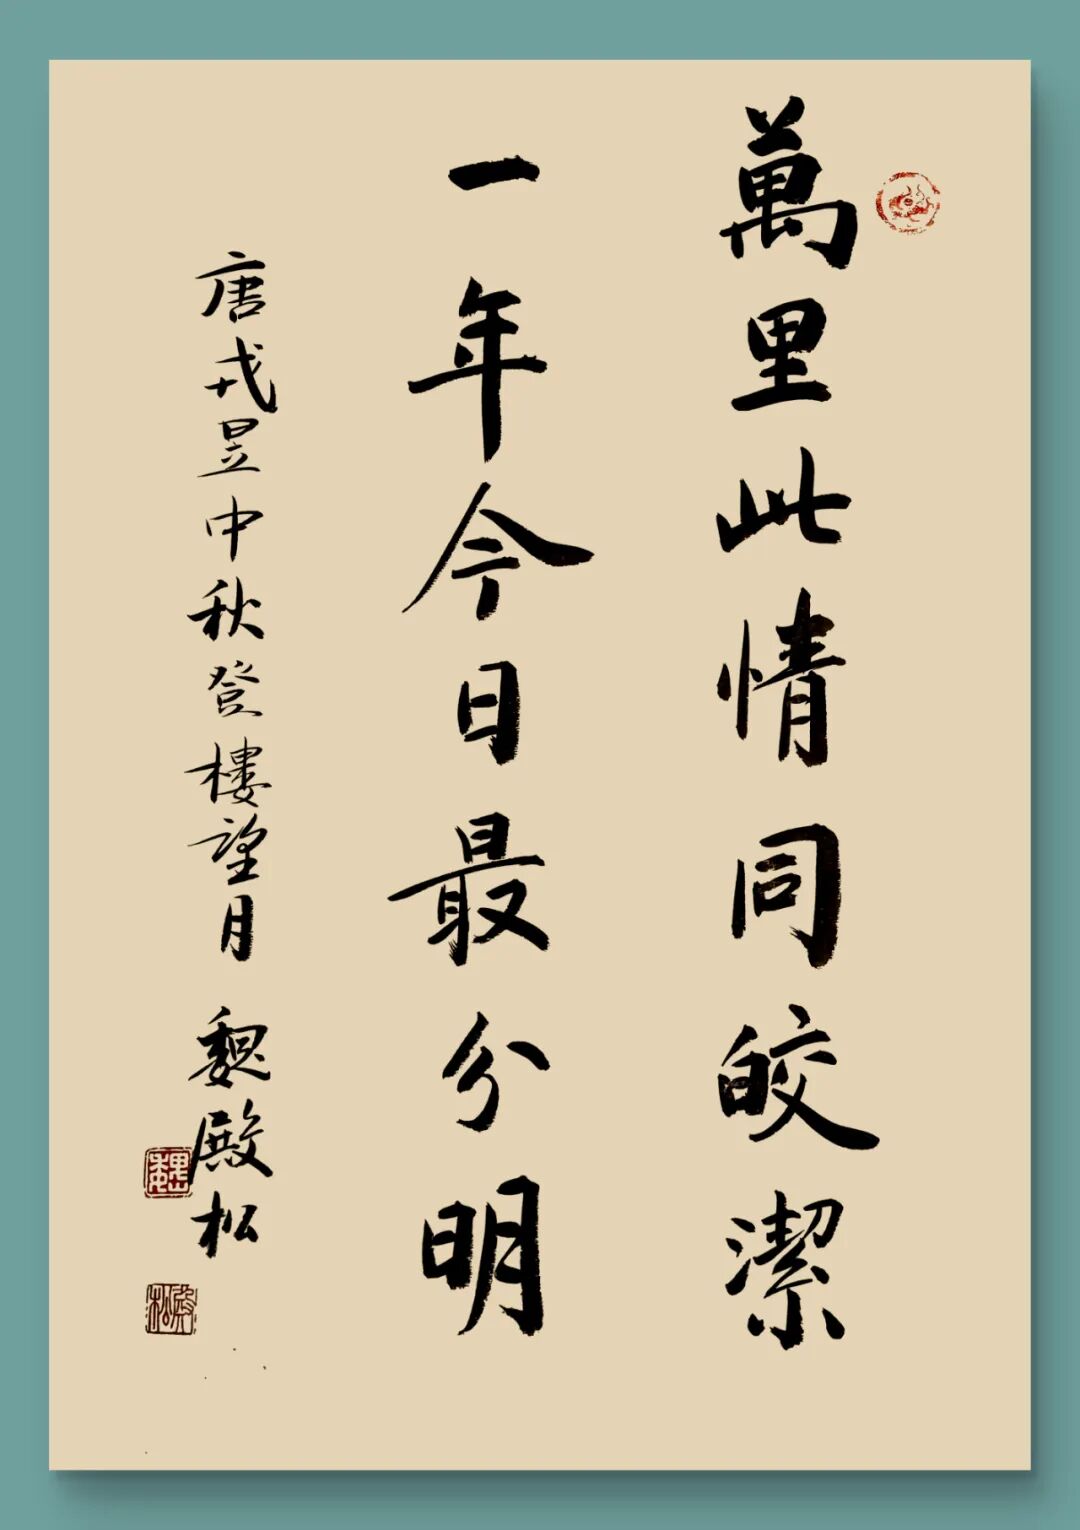 萬里此情同皎潔
一年今日最分明
唐戎昱中秋登樓望月 魏殿松
魏
殿松